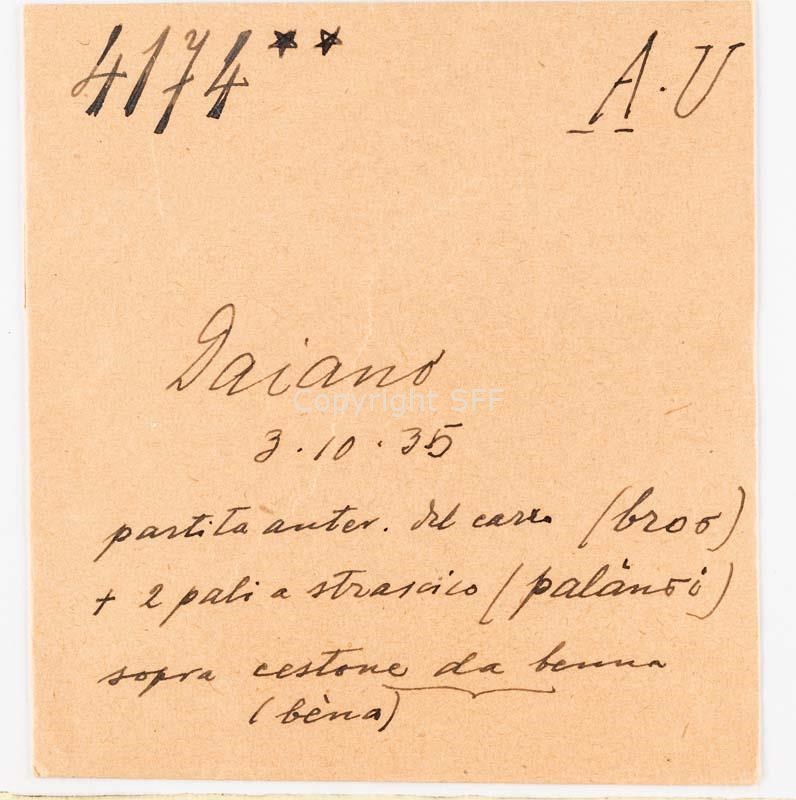 4174**
A.U
Daiano
Copyright SFF
3.10.35
partita anter. del carro (broo)
+ 2 pali a strascico (palànoi)
sopra cestone da benna
(bèna)